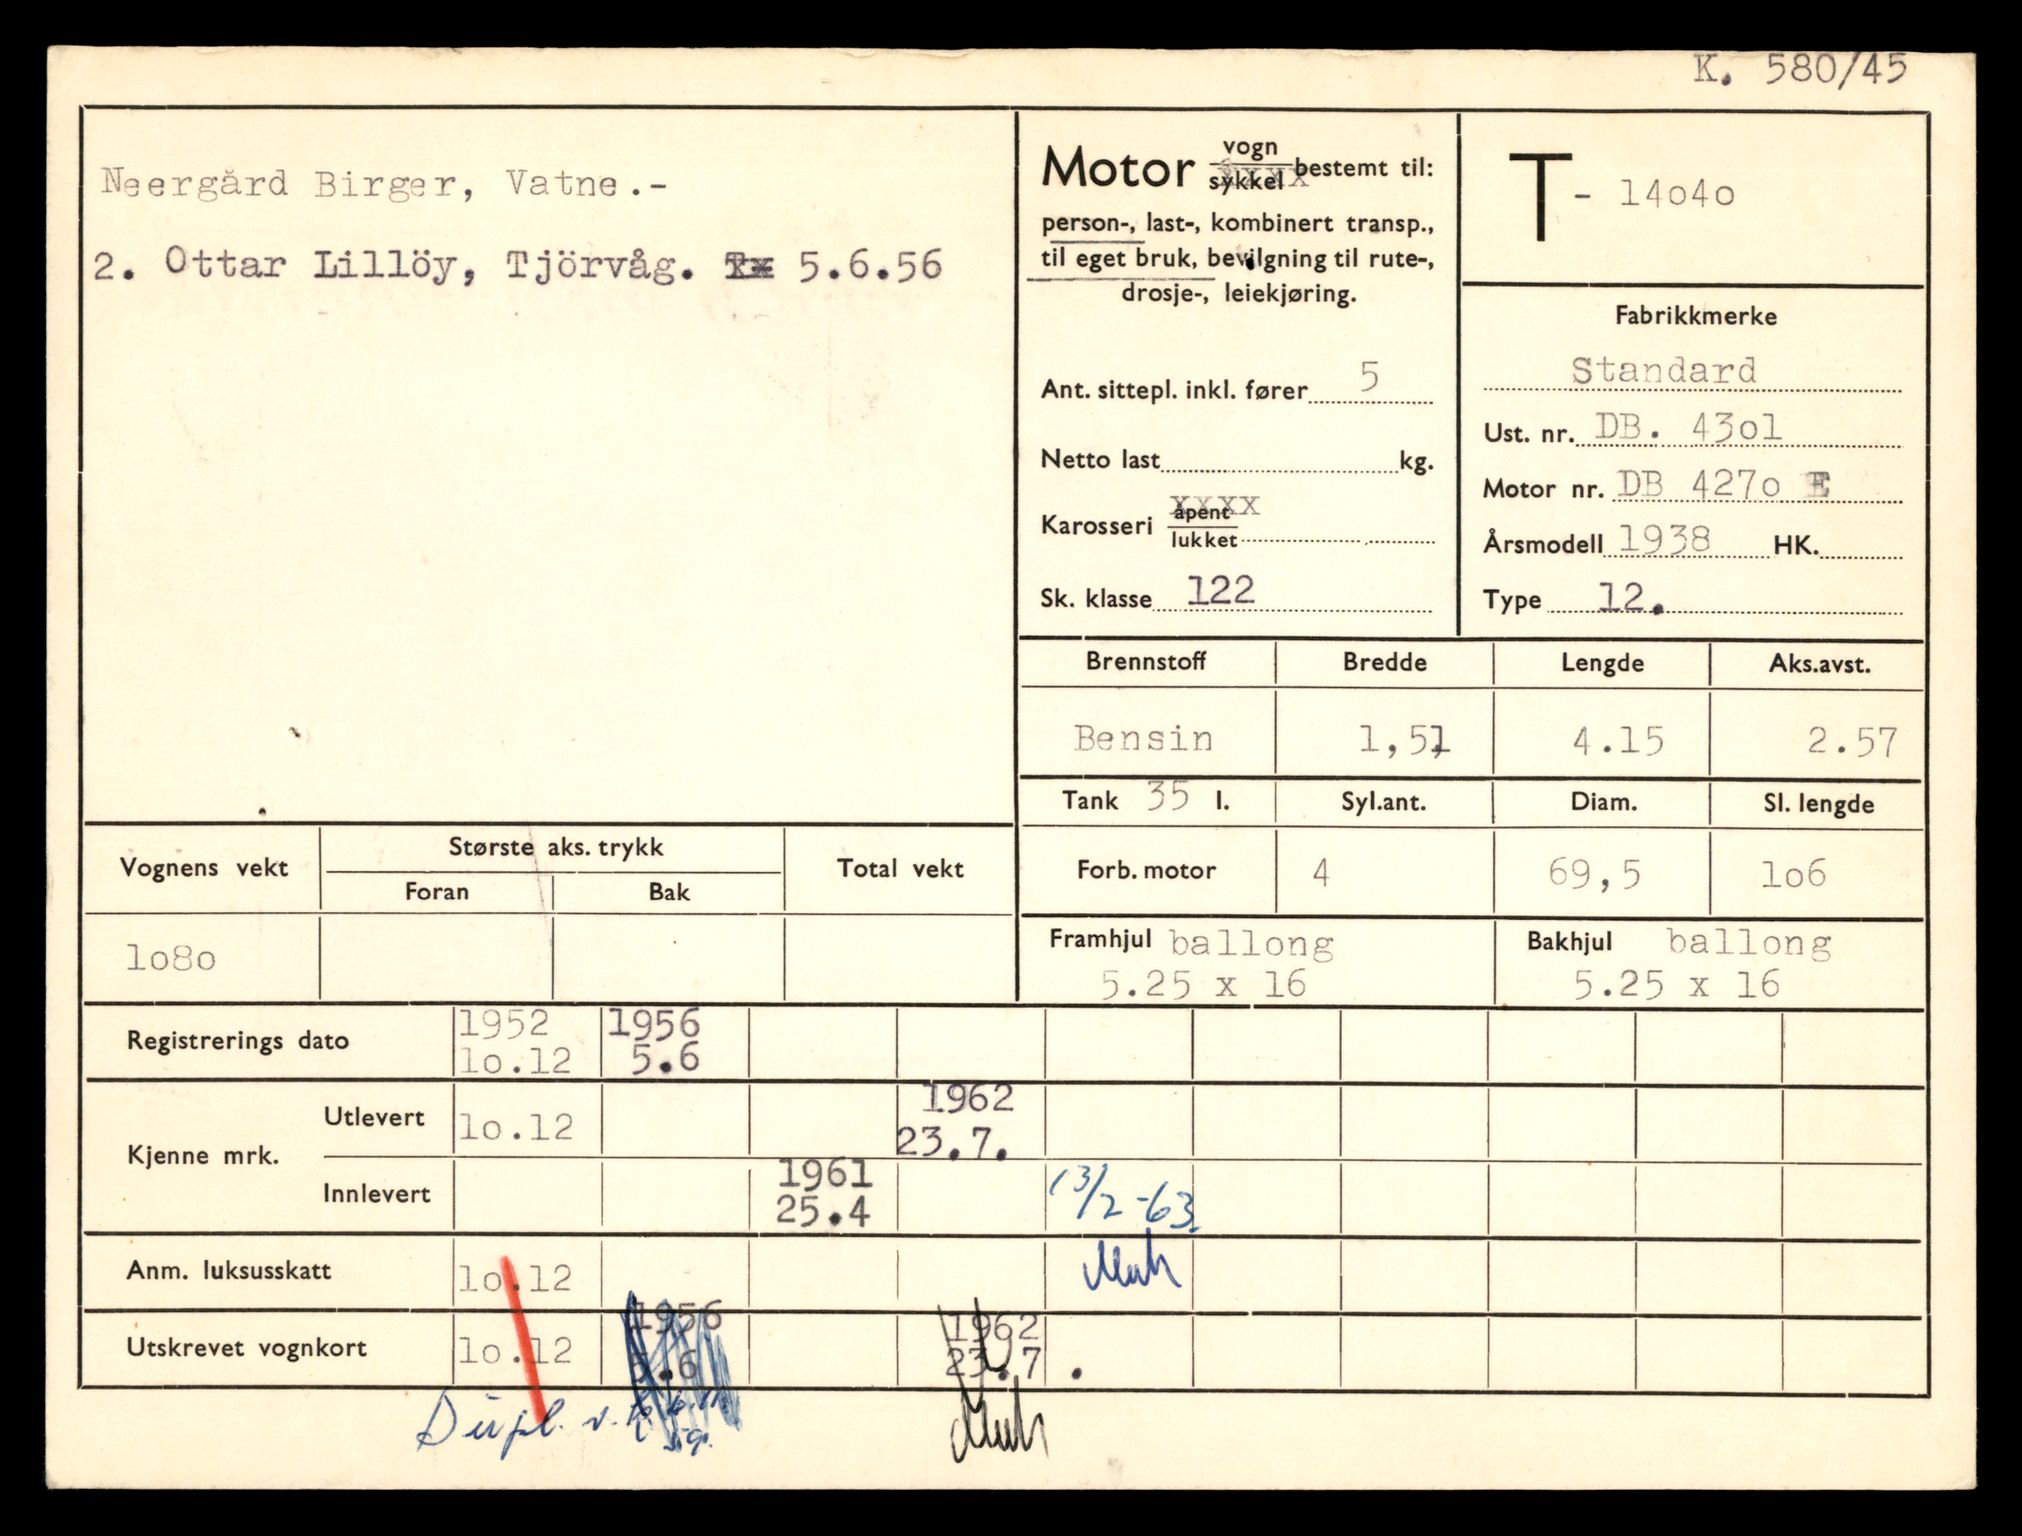 K. 580/45
Neergård Birger, Vatne.-
2. Ottar Lillöy, Tjörvåg. 5.6.56
Motor vogn
sykkel bestemt til:
person-, last-, kombinert transp.,
til eget bruk, bevilgning til rute-,
drosje-, leiekjøring.
Ant. sittepl. inkl. fører 5
Netto last kg.
Karosseri åpent
lukket
Sk. klasse 122
T - 14040
Fabrikkmerke
Standard
Ust. nr. DB. 43o1
Motor nr. DB 427o E
Årsmodell 1938 HK.
Type 12.
Brennstoff Bredde Lengde Aks.avst.
Bensin 1,51 4.15 2.57
Tank 35 l. Syl.ant. Diam. Sl. lengde
Forb. motor 4 69,5 1o6
Framhjul ballong Bakhjul ballong
5.25 x 16 5.25 x 16
Vognens vekt Største aks. trykk Total vekt
Foran Bak
1o8o
Registrerings dato 1952 1956
1o.12 5.6
Kjenne mrk. Utlevert 1o.12 1962
23.7.
Innlevert 1961 13/2-63.
25.4
Anm. luksusskatt 1o.12
Utskrevet vognkort 1o.12 1956 1962
5.6 23.7.
Dupl.